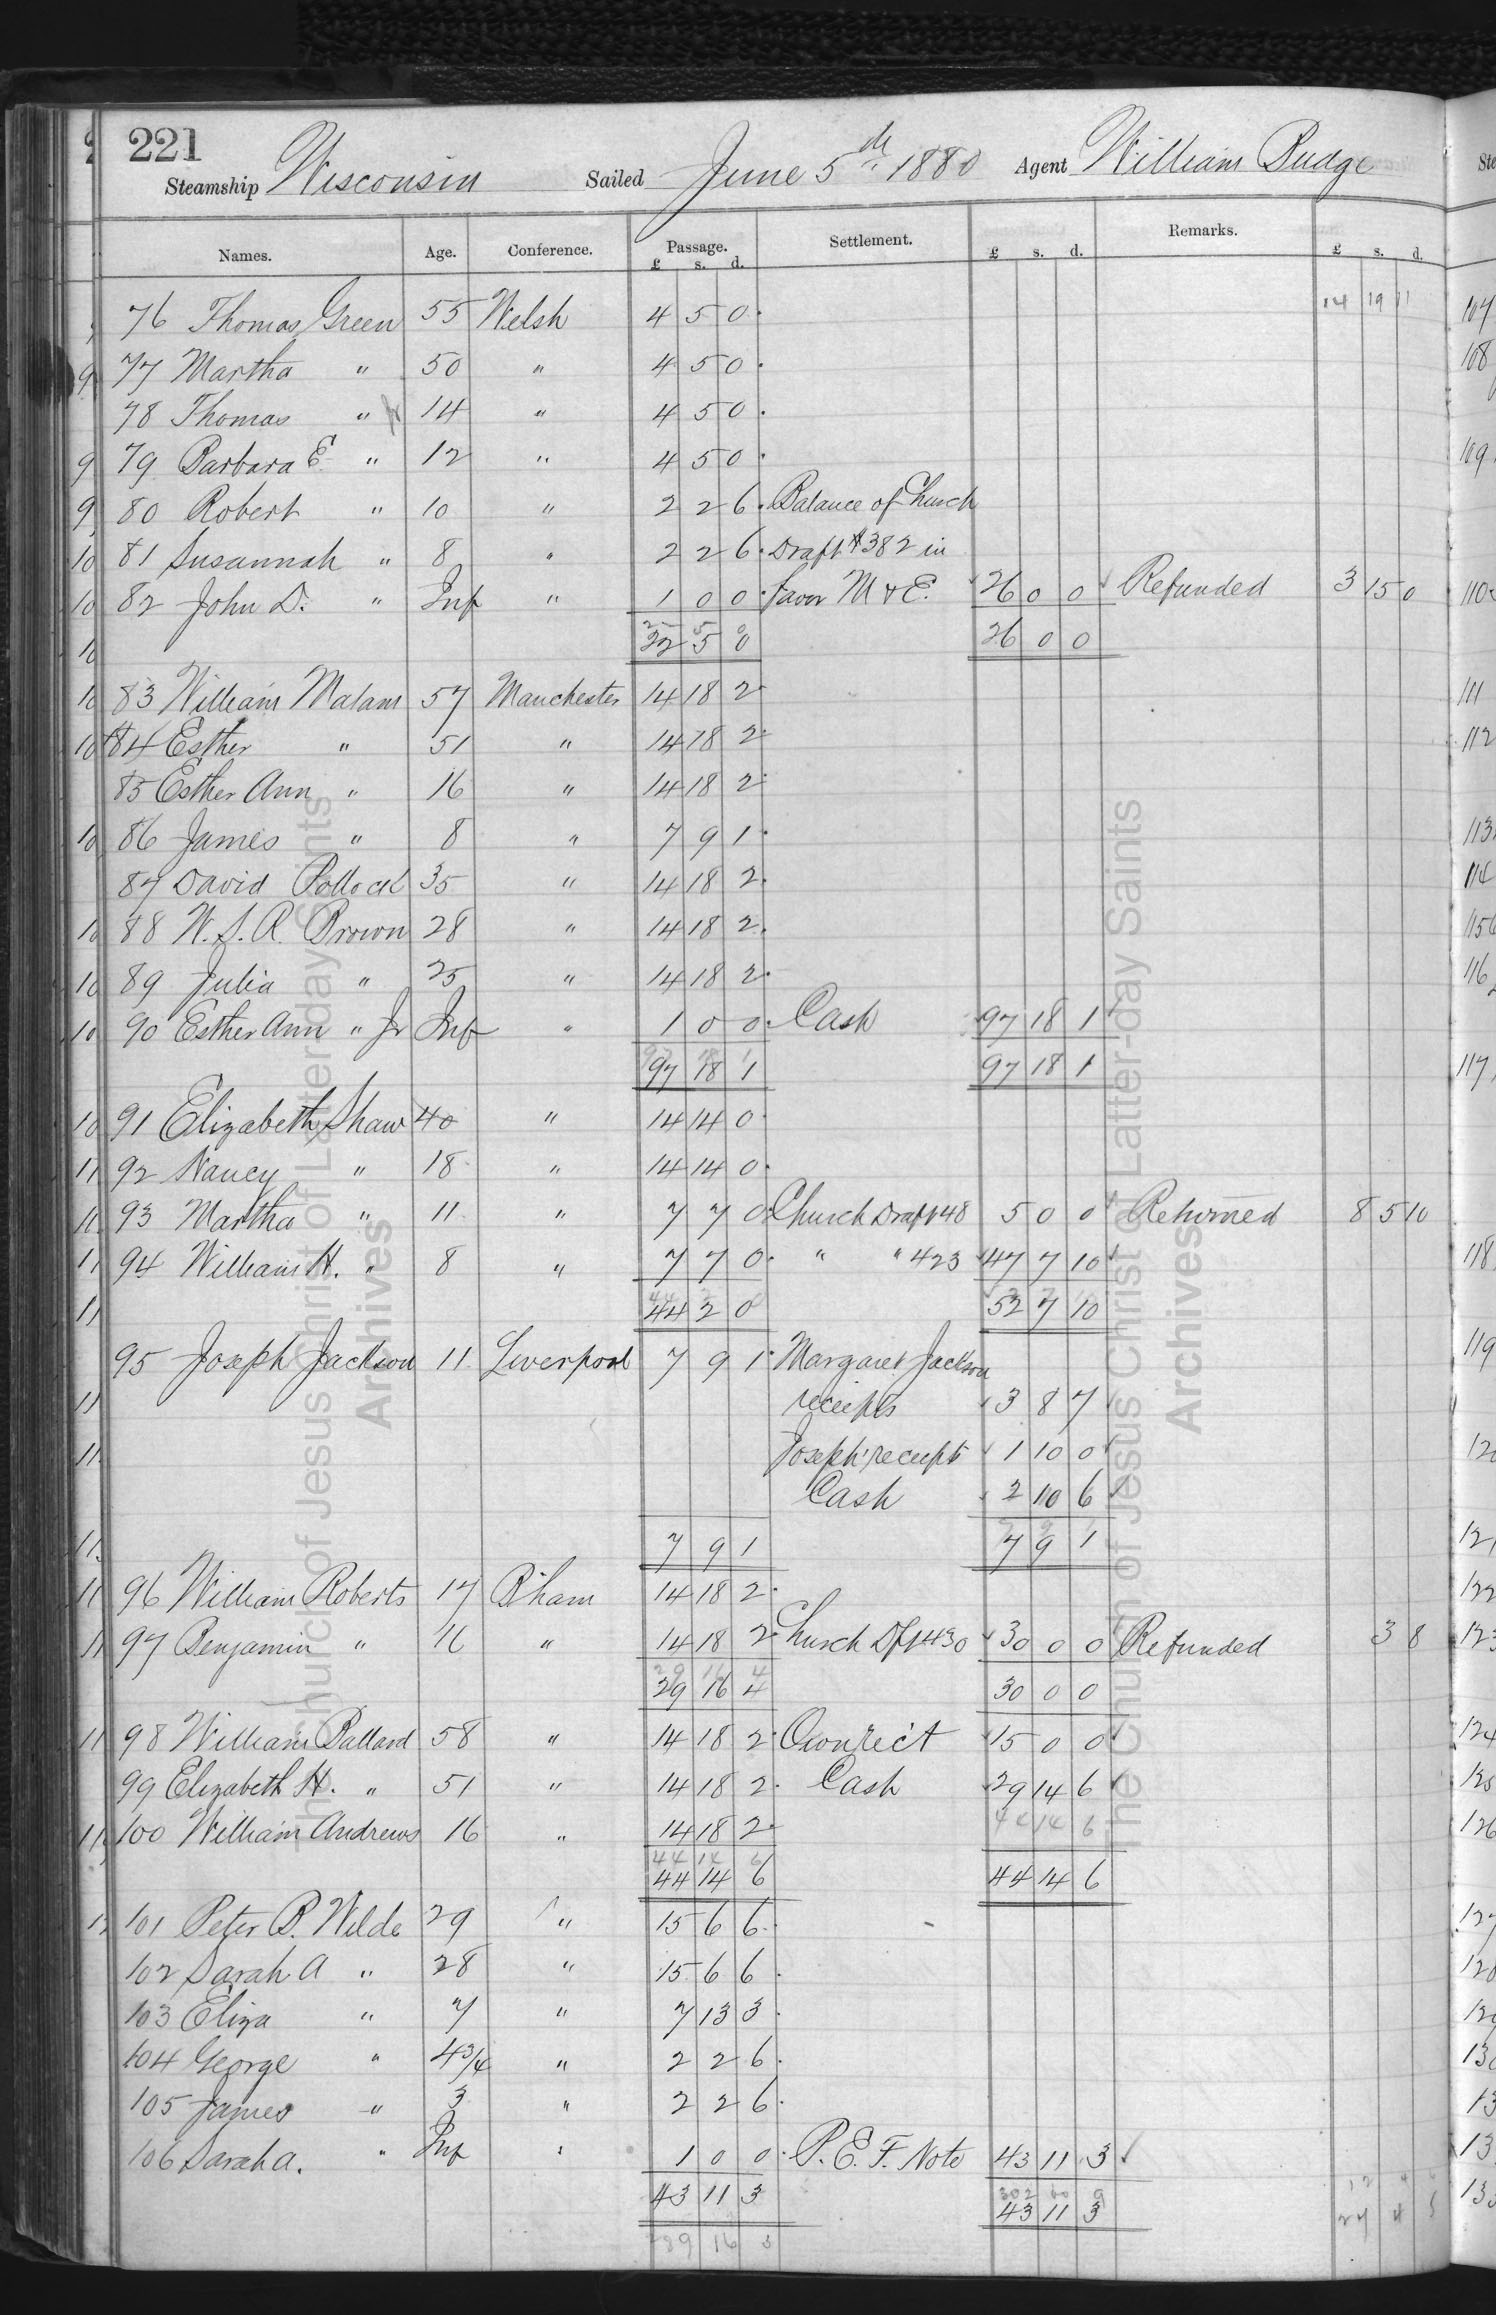 221
Steamship Wisconsin Sailed June 5th 1880 Agent William Budge
Names. Age. Conference. Passage. Settlement. Remarks.
£ s. d. £ s. d. £ s. d.
14 19 11
76 Thomas Green 55 Welsh 4 5 0
77 Martha " 50 " 4 5 0
78 Thomas " Jr 14 " 4 5 0
79 Barbara E. " 12 " 4 5 0
80 Robert " 10 " 2 2 6 Balance of Church
81 Susannah " 8 " 2 2 6 Draft #382 in
82 John D. " Inf " 1 0 0 favor M & E. 26 0 0 Refunded 3 15 0
22 5 0 26 0 0
83 William Malam 57 Manchester 14 18 2
84 Esther " 51 " 14 18 2
85 Esther Ann " 16 " 14 18 2
86 James " 8 " 7 9 1
87 David Pollock 35 " 14 18 2
88 W. S. R. Brown 28 " 14 18 2
89 Julia " 25 " 14 18 2
90 Esther Ann " Jr Inf " 1 0 0 Cash 97 18 1
97 18 1 97 18 1
91 Elizabeth Shaw 40 " 14 14 0
92 Nancy " 18 " 14 14 0
93 Martha " 11 " 7 7 0 Church Draft 48 5 0 0 Returned 8 5 10
94 William H. " 8 " 7 7 0 " " 423 47 7 10
44 2 0 52 7 10
95 Joseph Jackson 11 Liverpool 7 9 1 Margaret Jackson
receipts 3 8 7
Joseph' receipts 1 10 0
Cash 2 10 6
7 9 1 7 9 1
96 William Roberts 17 B'ham 14 18 2
97 Benjamin " 16 " 14 18 2 Church Dft 430 30 0 0 Refunded 3 8
29 16 4 30 0 0
98 William Ballard 58 " 14 18 2 Own rec't 15 0 0
99 Elizabeth H. " 51 " 14 18 2 Cash 29 14 6
100 William Andrews 16 " 14 18 2 44 14 6
44 14 6 44 14 6
101 Peter B. Wilde 29 " 15 6 6
102 Sarah A " 28 " 15 6 6
103 Eliza " 7 " 7 13 3
104 George " 4 3/4 " 2 2 6
105 James " 3 " 2 2 6
106 Sarah A. " Inf " 1 0 0 P. E. F. Note 43 11 3
43 11 3 43 11 3
The Church of Jesus Christ of Latter-day Saints
Archives
The Church of Jesus Christ of Latter-day Saints
Archives